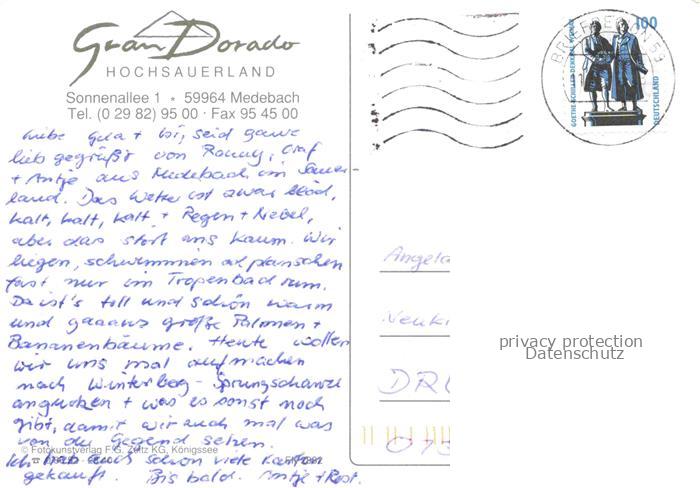 Gran Dorado
HOCHSAUERLAND
Sonnenallee 1 * 59964 Medebach
Tel. (0 29 82) 95 00 · Fax 95 45 00
liebe + seid ganz
lieb gegrüßt von Ronny, Olaf
+ Antje aus Medebach im Sauer-
land. Das Wetter ist zwar blöd,
kalt, kalt, kalt + Regen + Nebel,
aber das stört uns kaum. Wir
liegen, schwimmen od. planschen
fast nur im Tropenbad rum.
Da ist's toll und schön warm
und gaaanz große Palmen +
Bananenbäume. Heute wollen
wir uns mal aufmachen
nach Winterberg - Sprungschanze
angucken + was es sonst noch
gibt, damit wir auch mal was
von der Gegend sehen.
© Fotokunstverlag F.G. Zeitz KG, Königssee
Ich hab auch schon viele Karten
gekauft. Bis bald. Antje + Rest.
100
GOETHE-SCHILLER-DENKMAL WEIMAR
DEUTSCHLAND
BRIEFREGION 59
Angela
privacy protection
Datenschutz